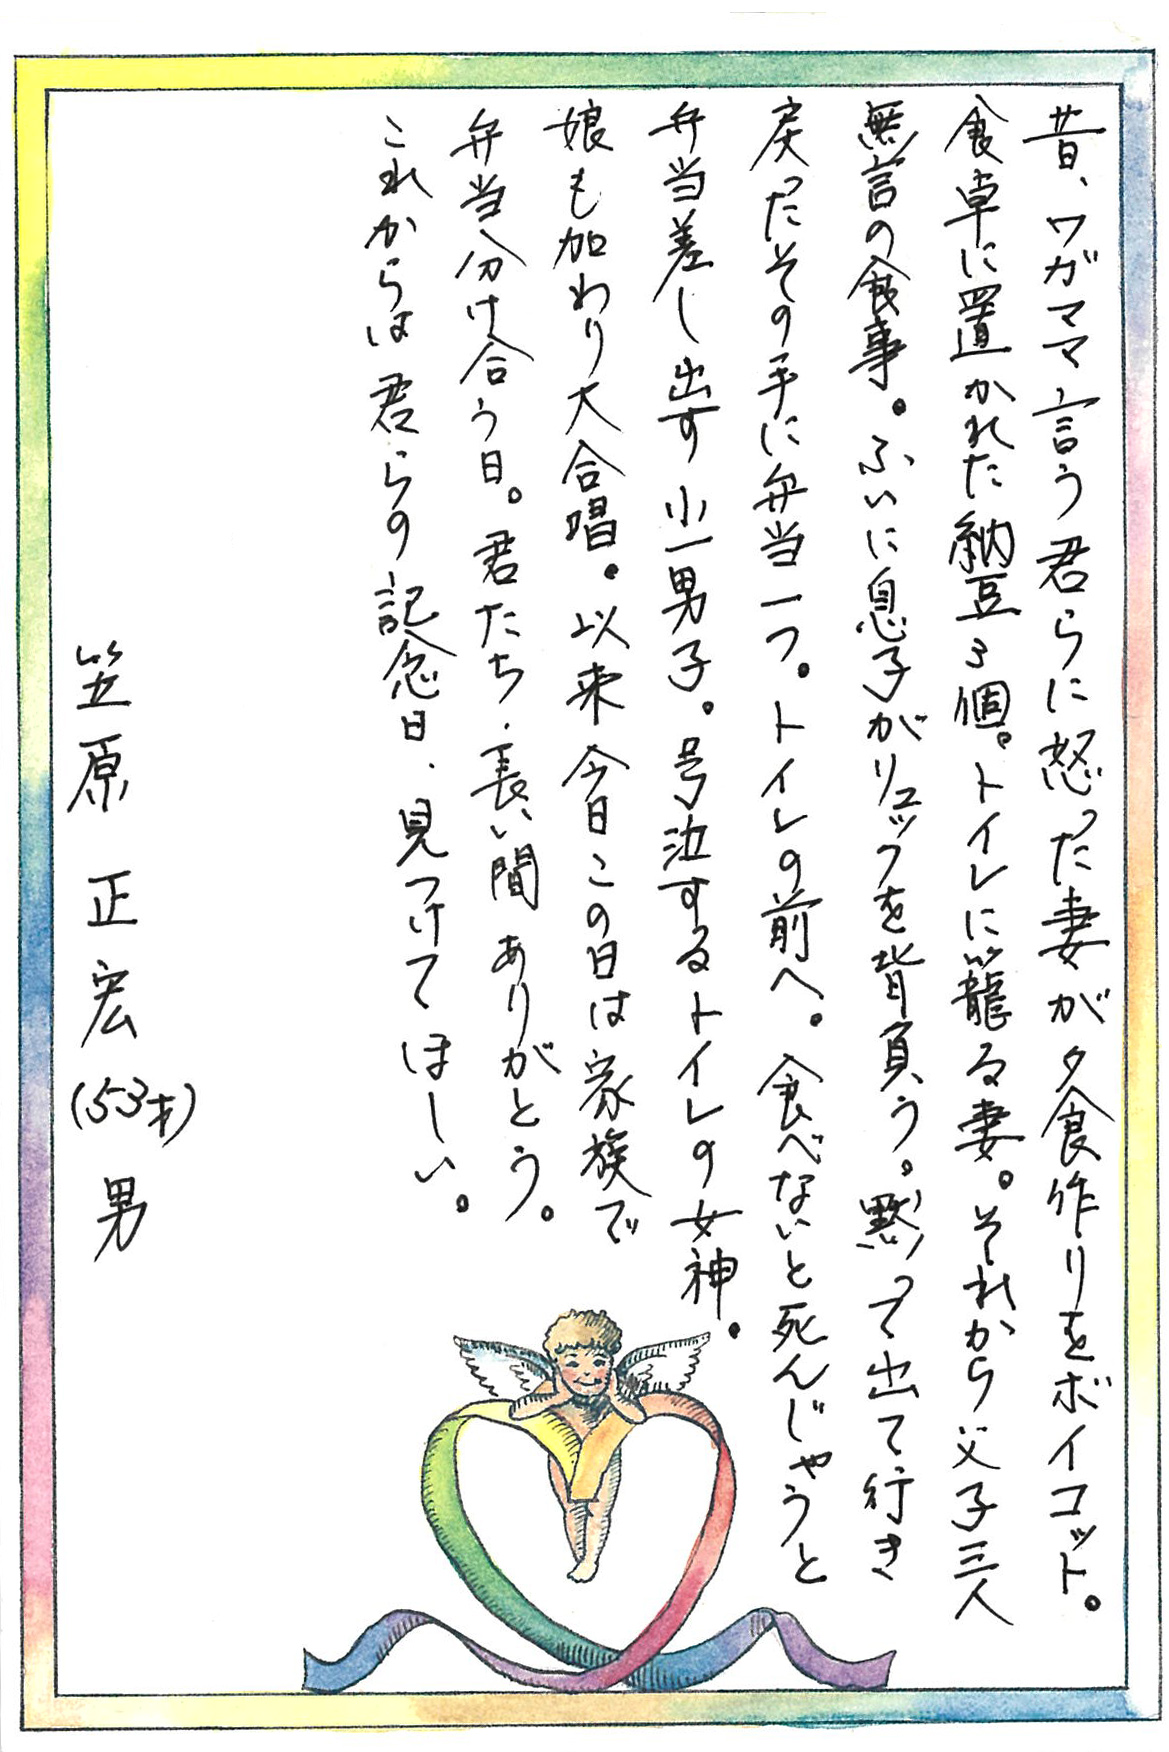 昔、ワガママ言う君らに怒った妻が夕食作りをボイコット。
食卓に置かれた納豆3個。トイレに籠る妻。それから父子三人
無言の食事。ふいに息子がリュックを背負う。黙って出て行き
戻ったその手に弁当一つ。トイレの前へ。食べないと死んじゃうと
弁当差し出す小一男子。号泣するトイレの女神。
娘も加わり大合唱。以来今日この日は家族で
弁当分け合う日。君たち、長い間ありがとう。
これからは君らの記念日、見つけてほしい。
笠原 正宏 (53才) 男